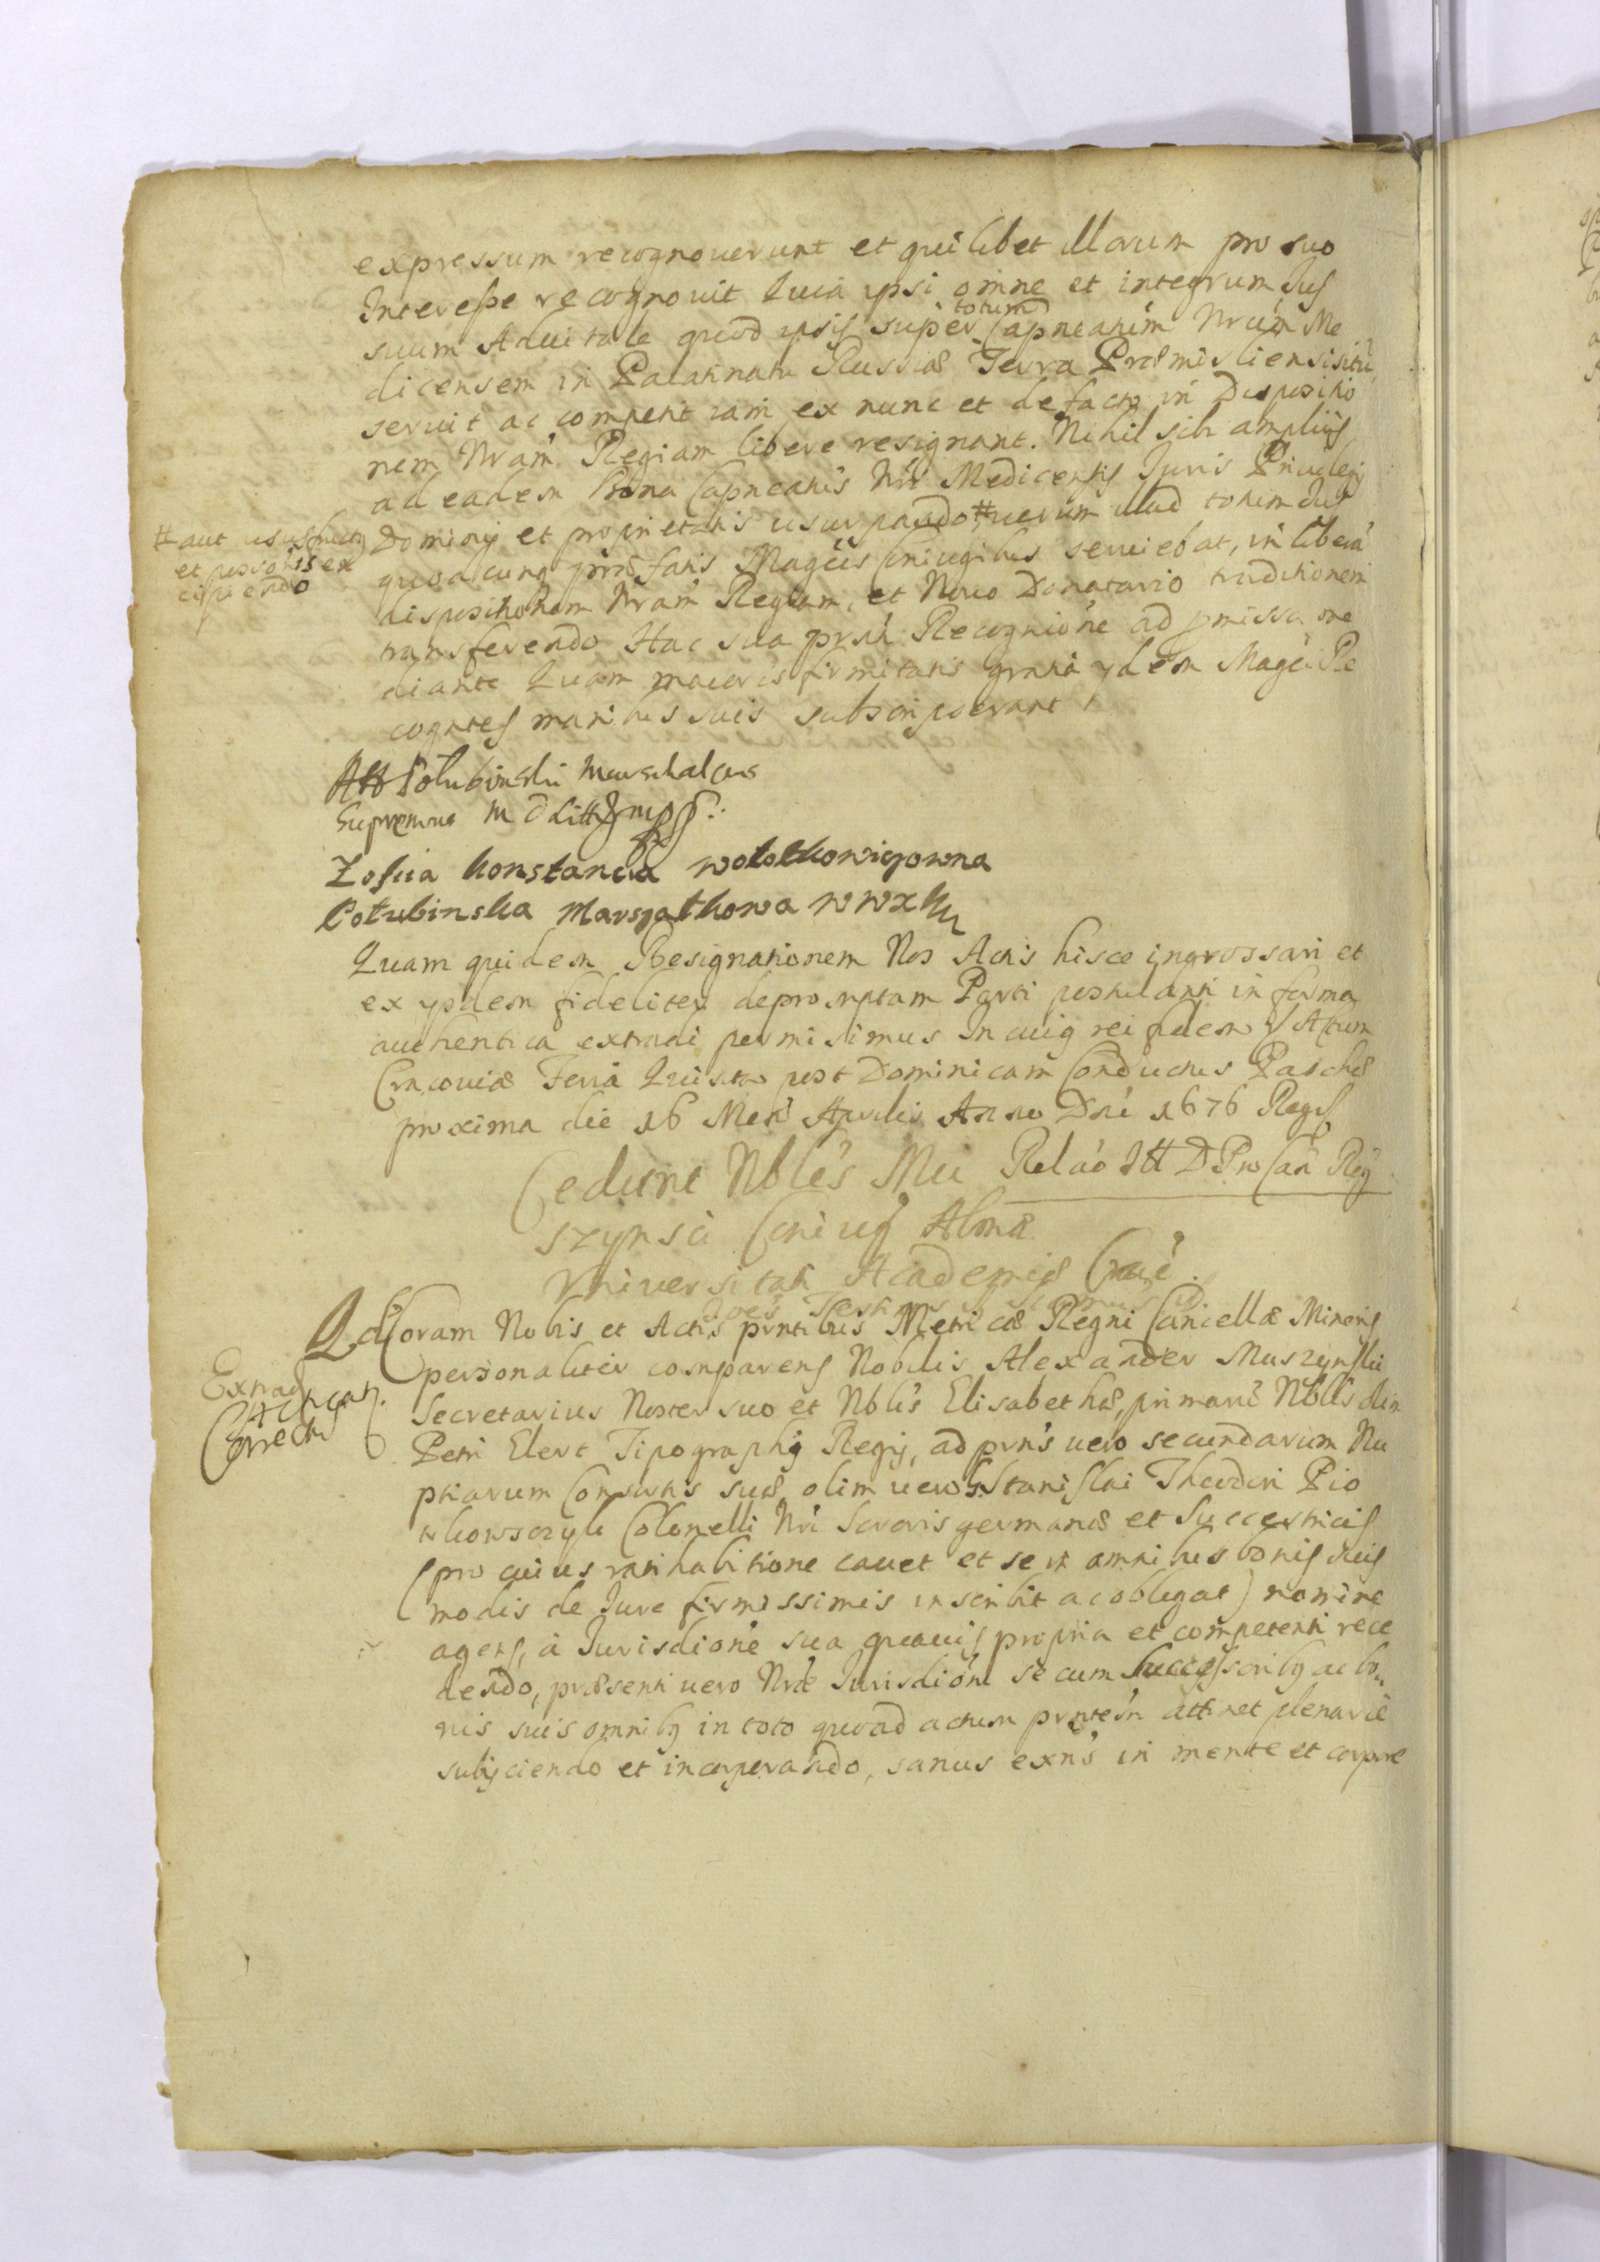 expressum recognoverunt et quilibet illorum pro suo
Interesse recognovit Quia ipsi omne et integrum Jus
suum Advitale quod ipsis super totum Capneatum Nrum Me
dicensem in Palatinatu Russiæ Terra Præmisliensi situ
servit ac competit iam ex nunc et de facto in Dispositio
nem Nram Regiam libere resignant. Nihil sibi amplius
ad eadem bona Capneatus Nri Medicensis Juris Privilegij
Dominij et proprietatis usurpando, # verum illud totum Jus
# aut ususfructus
et possessionis ex
cipiendo
quodcunq præfatis Magcis Coniugibus serviebat, in liberã
dispositionem Nram Regiam, et Novo Donatario traditionem
transferendo Hac sua prnti Recognione ad pmissa me
diante Quam maioris firmitatis gratia ydem Magci Re
cogntes manibus suis subscripserunt
AH Połubinski Marschalcus
Supremus M D Litt mpp.
Zofiia Konstancia Wołołkowiczowna
Połubinska Marszałkowa WWXL
Quam quidem Resignationem Nos Actis hisce ingrossari et
ex ysdem fideliter depromptam Parti postulanti in forma
authentica extradi permisimus In cuiq rei fidem Actum
Cracoviæ Feria Quinta post Dominicam Conductus Paschæ
proxima die 16 Mens Aprilis Anno Dni 1676 Regn
Relão Ill D Pro Can Reg
Cedunt Nbles Mu
szynsci Coniug Almæ
Vniversitati Academiæ Crac.
Coram Nobis et Actis prntibus Metricæ Regni Cancellæ Minoris
personaliter comparens Nobilis Alexander Muszynski
Extrad
Correct
Secretarius Noster suo et Nblis Elisabethæ, primarie Nblis olim
Petri Elert Tipographi Regij, ad prns vero secundarum Nu
ptiarum Consortis suæ, olim vero Stanislai Theodori Pio
trkowczyk Colonelli Nri Sororis germanæ et Successtricis
(pro cuius ratihabitione cavet et se in omnibus bonis suis
modis de Jure firmissimis inscribit ac obligat) nomine
agens, à Jurisdione sua quavis propria et competenti rece
dendo, præsenti vero Nræ Jurisdioni se cum Successoribq ac bo,
nis suis omnibq in toto quoad actum prntem attinet plenarie
subijciendo et incorporando, sanus exns in mente et corpore